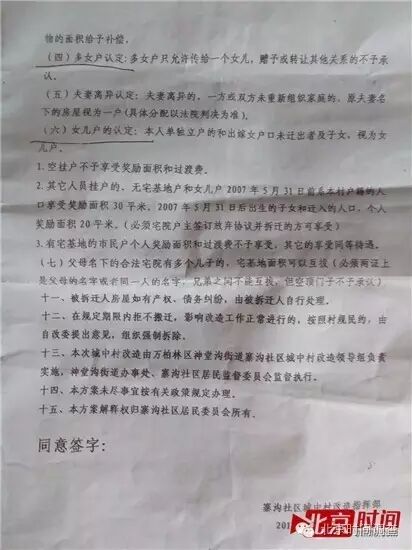 物的面积给予补偿。
（四）多女户认定：多女户只允许传给一个女儿，赠予或转让其他关系的不予承
认。
（五）夫妻离异认定：夫妻离异的，一方或双方未重新组织家庭的，原夫妻名
下的房屋视为一户（具体分配以法院判决为准）。
（六）女儿户的认定：本人单独立户的和出嫁女户口未迁出者及子女，视为女
儿户。
1.空挂户不予享受奖励面积和过渡费。
2.其它人员挂户的、无宅基地户和女儿户2007年5月31日前系本村户籍的人
口享受奖励面积30平米，2007年5月31日后出生的子女和迁入的人口，个人
奖励面积20平米。（必须宅院户主签订放弃协议并拆迁的方可享受）
3.有宅基地的市民户个人奖励面积和过渡费不予享受，其它的享受同等待遇。
（七）父母名下的合法宅院有多个儿子的，宅基地面积可以互拨（必须两证上
是父母的名字或者同一人的名字，兄弟之间不能互拨，但空顶门子不予承认）
十一、被拆迁人房屋如有产权、债务纠纷，由被拆迁人自行处理。
十二、在规定期限内拒不搬迁，影响改造工作正常进行的，按照村规民约，由
自改委提出意见，组织强制拆除。
十三、本次城中村改造由万柏林区神堂沟街道寨沟社区城中村改造领导组负责
实施，神堂沟街道办事处、寨沟社区居民监督委员会监督执行。
十四、本方案未尽事宜按有关政策规定办理。
十五、本方案解释权归寨沟社区居民委员会所有。
同意签字：
寨沟社区城中村改造指挥部
201
北京时间